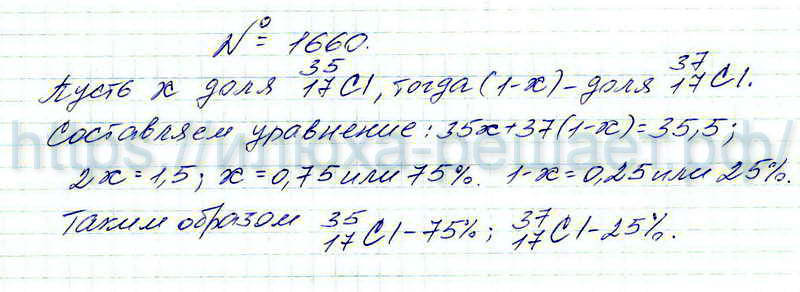 № 1660.
Пусть x доля ³⁵₁₇Cl, тогда (1-x) - доля ³⁷₁₇Cl.
Составляем уравнение: 35x+37(1-x)=35,5;
2x=1,5; x=0,75 или 75%. 1-x=0,25 или 25%.
Таким образом ³⁵₁₇Cl-75%; ³⁷₁₇Cl-25%.